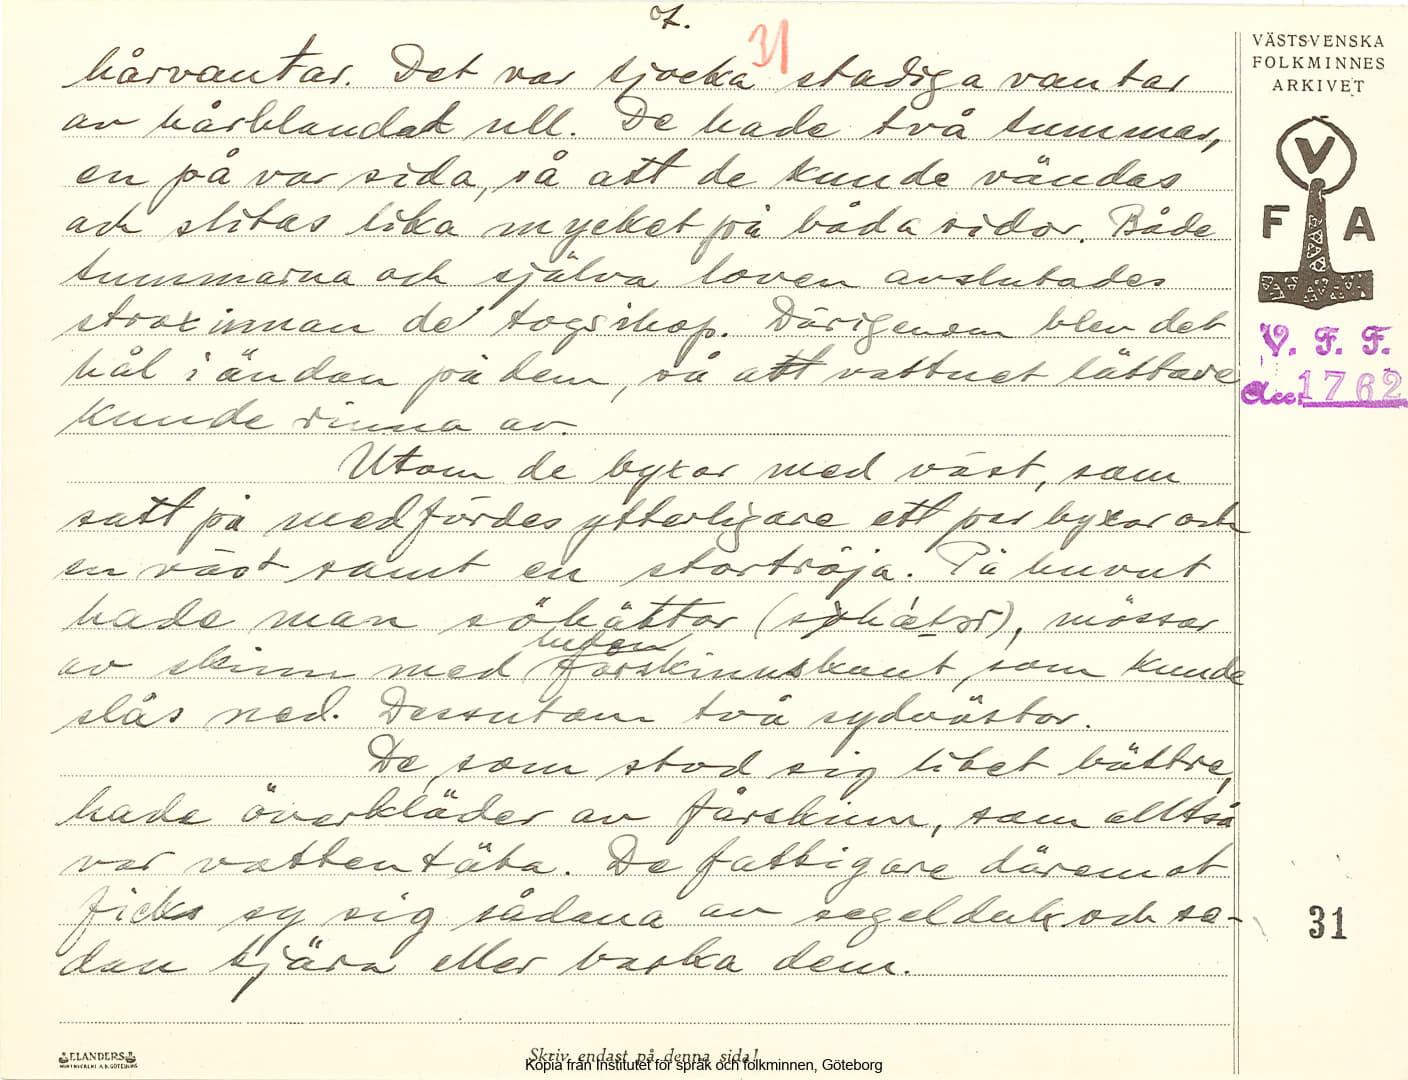 7.
31
hårvantar. Det var tjocka stadiga vantar
av hårblandat ull. De hade två tummar,
en på var sida, så att de kunde vändas
och slitas lika mycket på båda sidor. Både
tummarna och själva loven avslutades
strax innan de togs ihop. Därigenom blev det
hål i ändan på dem, så att vattnet lättare
kunde rinna av.
Utom de byxor med väst, som
satt på medfördes ytterligare ett par byxor och
en väst samt en stortröja. På huvut
hade man söhättor (), mössor
luden
av skinn med fårskinnskant, som kunde
slås ned. Dessutom två sydvästar.
De, som stod sig litet bättre,
hade överkläder av fårskinn, som alltså
var vattentäta. De fattigare däremot
ficks sy sig sådana av segelduk och se-
dan tjära eller barka dem.
VÄSTSVENSKA
FOLKMINNES
ARKIVET
V
F A
V. F. F.
Acc. 1762
31
ELANDERS
Skriv endast på denna sida!
Kopia från Institutet för språk och folkminnen, Göteborg